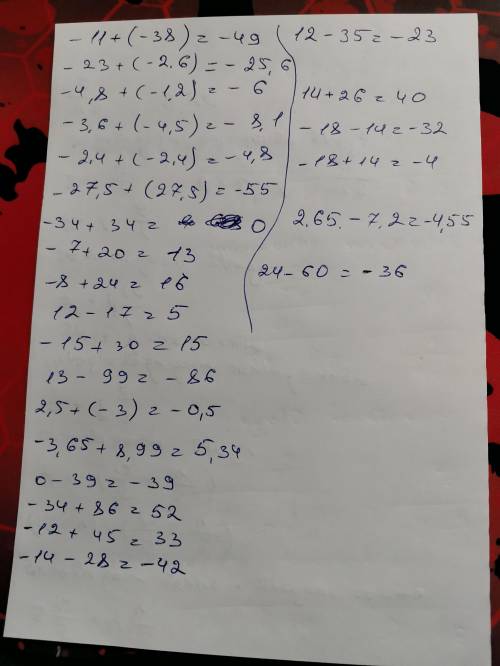 -11+(-38)=-49
-23+(-2.6)=-25,6
-4,8+(-1,2)=-6
-3,6+(-4,5)=-8,1
-2,4+(-2,4)=-4,8
-27,5+(27,5)=-55
-34+34= 0
-7+20=13
-8+24=16
12-17=5
-15+30=15
13-99=-86
2,5+(-3)=-0,5
-3,65+8,99=5,34
0-39=-39
-34+86=52
-12+45=33
-14-28=-42
12-35=-23
14+26=40
-18-14=-32
-18+14=-4
2.65.-7.2=-4,55
24-60=-36